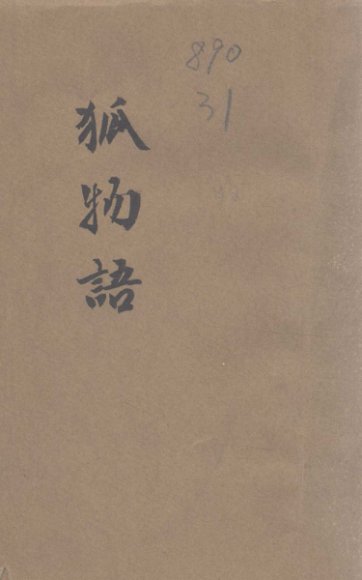 890
31
狐物語